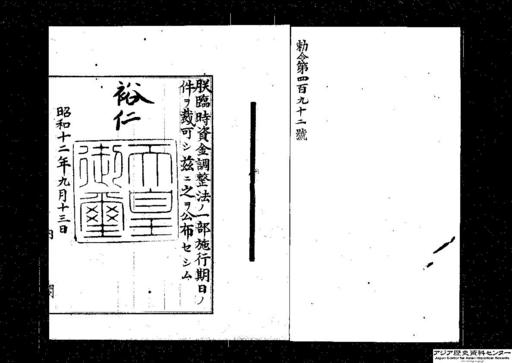 勅令第四百九十二號
朕臨時資金調整法ノ一部施行期日ノ
件ヲ裁可シ玆ニ之ヲ公布セシム
裕仁
天皇
御璽
昭和十二年九月十三日
内閣
アジア歴史資料センター
Japan Center for Asian Historical Records